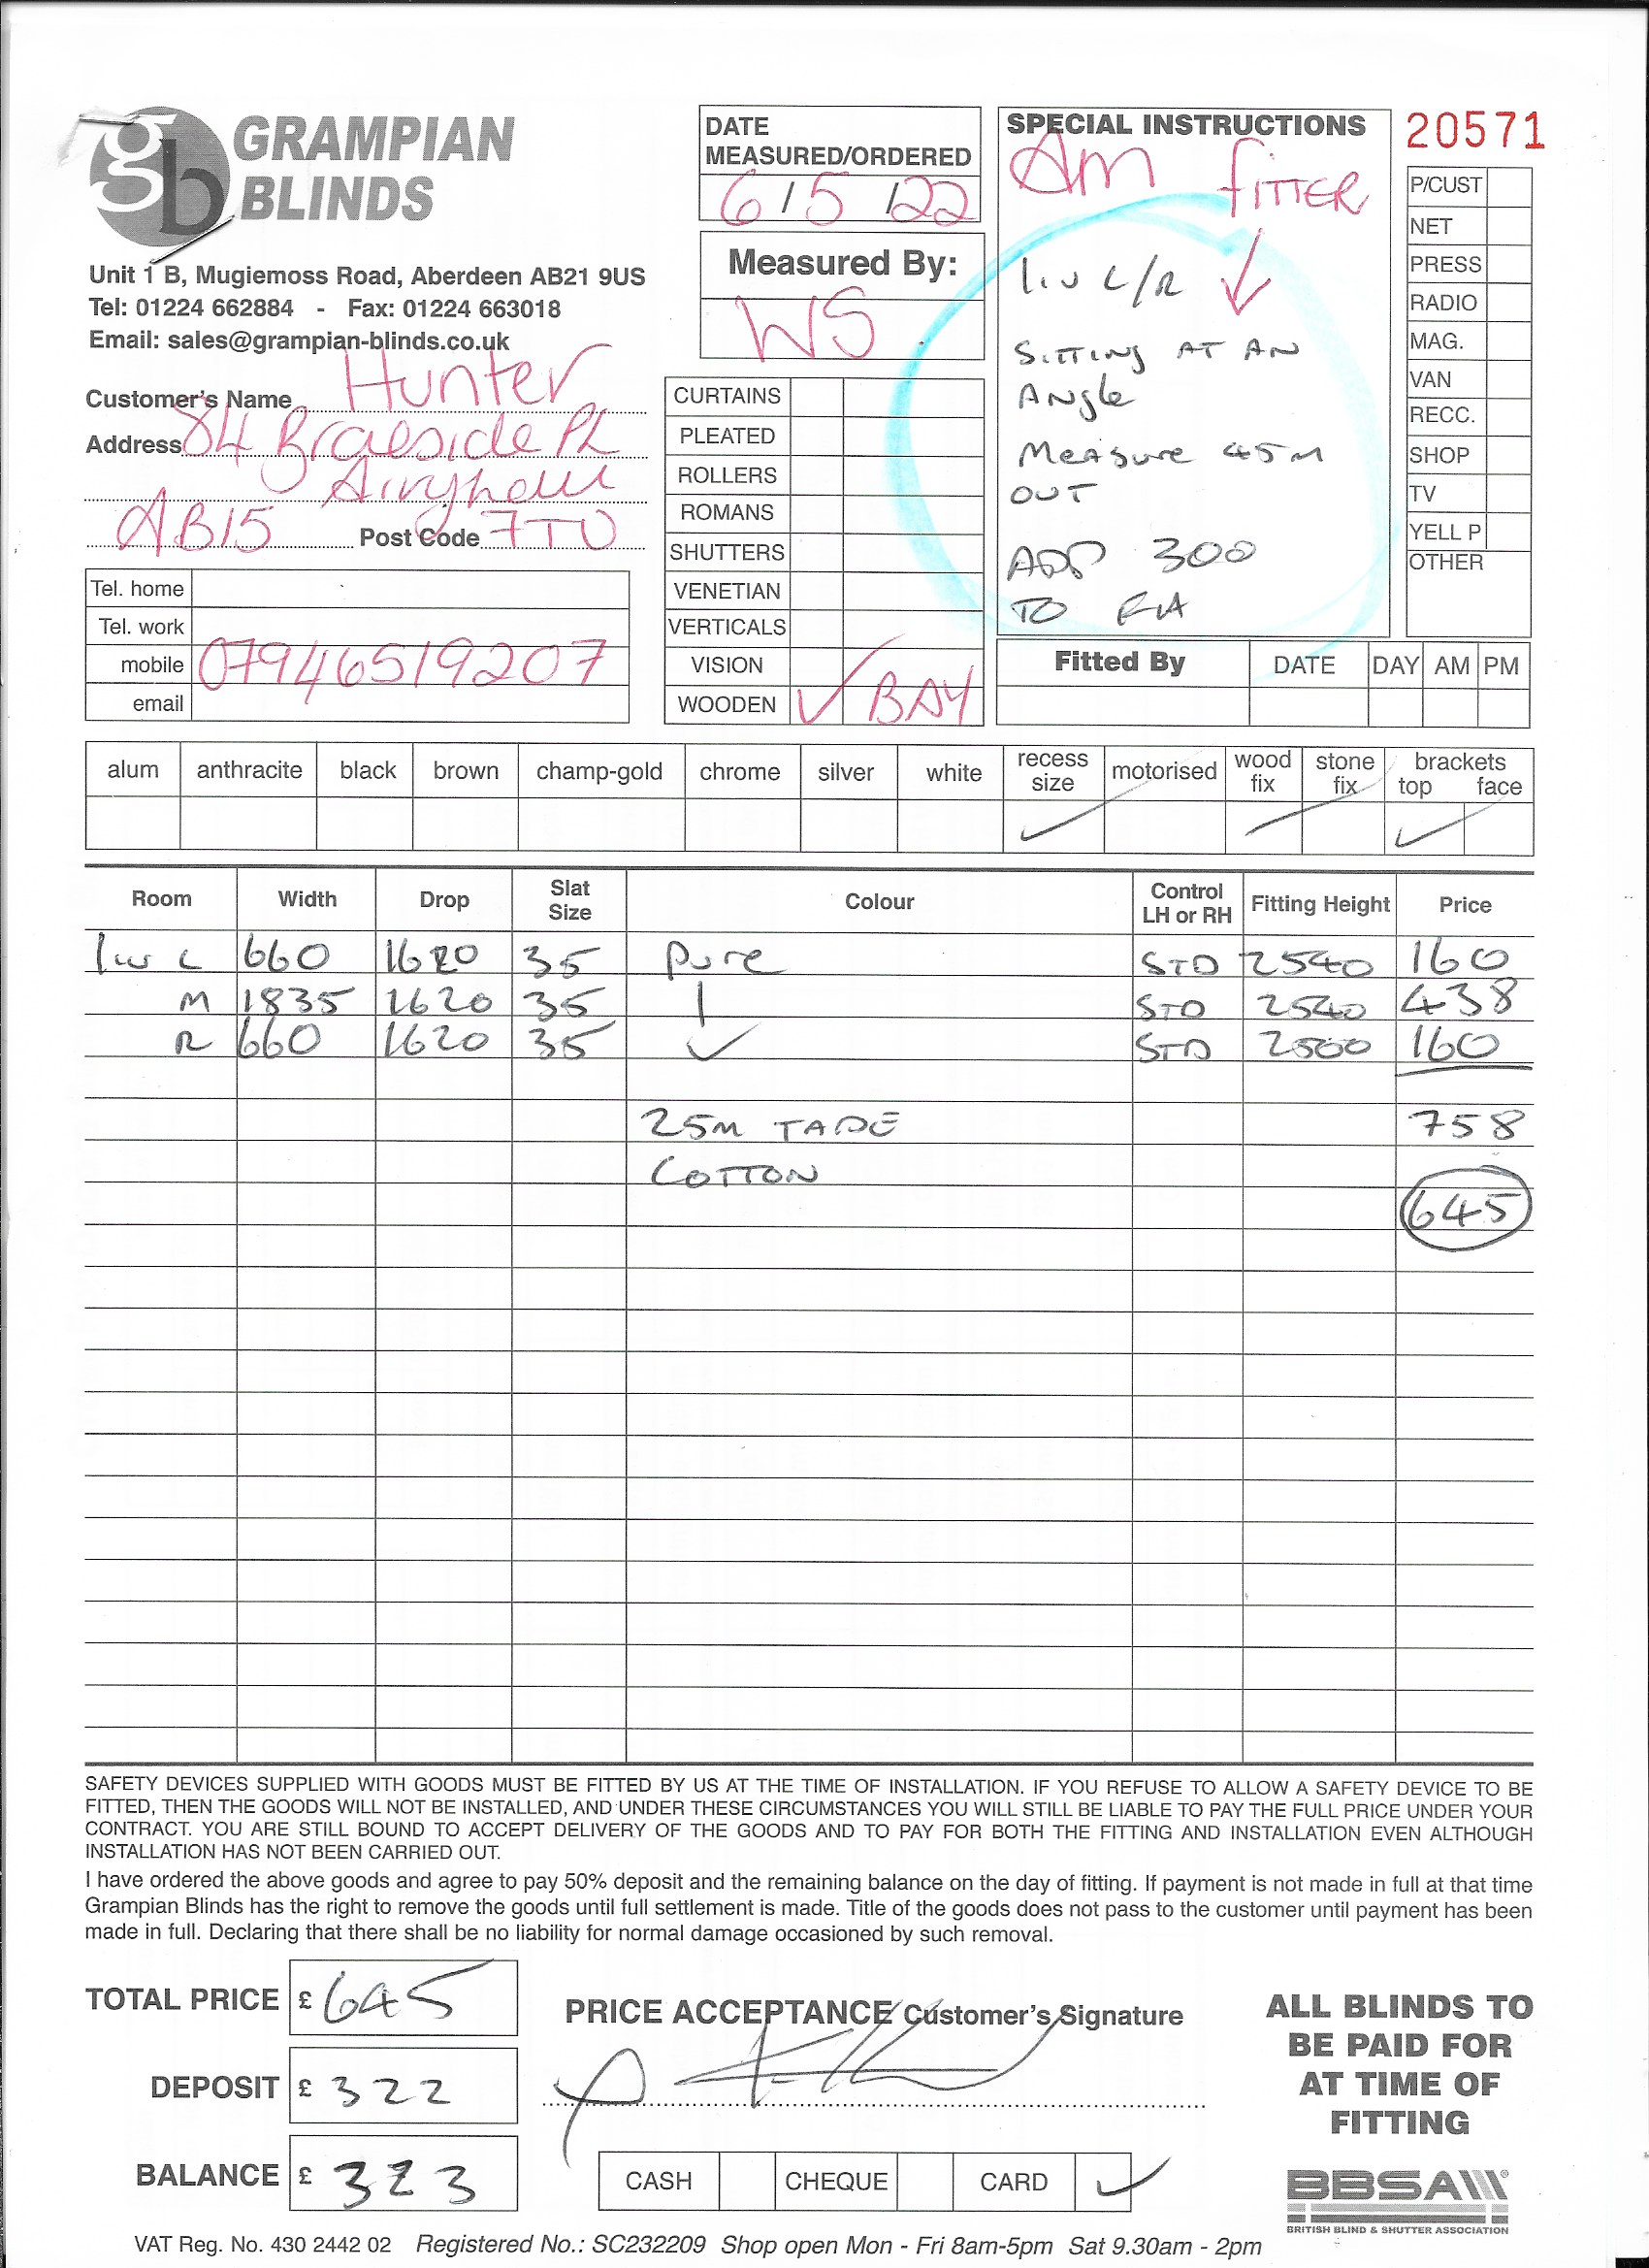 gb GRAMPIAN
BLINDS
Unit 1 B, Mugiemoss Road, Aberdeen AB21 9US
Tel: 01224 662884 - Fax: 01224 663018
Email: sales@grampian-blinds.co.uk
Customer's Name Hunter
Address 84 Braeside Pl
Airyhall
AB15 Post Code 7TU
Tel. home
Tel. work
mobile 07946519207
email
DATE
MEASURED/ORDERED
6/5/22
Measured By:
WS
CURTAINS
PLEATED
ROLLERS
ROMANS
SHUTTERS
VENETIAN
VERTICALS
VISION
WOODEN ✓ BAY
SPECIAL INSTRUCTIONS
AM FITTER
LIV L/R
SITTING AT AN
ANGLE
MEASURE 45M
OUT
ADD 300
TO
20571
P/CUST
NET
PRESS
RADIO
MAG.
VAN
RECC.
SHOP
TV
YELL P
OTHER
Fitted By DATE DAY AM PM
alum anthracite black brown champ-gold chrome silver white recess size motorised wood fix stone fix brackets top face
✓ ✓
Room Width Drop Slat Size Colour Control LH or RH Fitting Height Price
Liv L 660 1620 35 Pure STD 2540 160
M 1835 1620 35 STD 2540 438
R 660 1620 35 ✓ STD 2500 160
25M TAPE 758
COTTON
645
SAFETY DEVICES SUPPLIED WITH GOODS MUST BE FITTED BY US AT THE TIME OF INSTALLATION. IF YOU REFUSE TO ALLOW A SAFETY DEVICE TO BE
FITTED, THEN THE GOODS WILL NOT BE INSTALLED, AND UNDER THESE CIRCUMSTANCES YOU WILL STILL BE LIABLE TO PAY THE FULL PRICE UNDER YOUR
CONTRACT. YOU ARE STILL BOUND TO ACCEPT DELIVERY OF THE GOODS AND TO PAY FOR BOTH THE FITTING AND INSTALLATION EVEN ALTHOUGH
INSTALLATION HAS NOT BEEN CARRIED OUT.
I have ordered the above goods and agree to pay 50% deposit and the remaining balance on the day of fitting. If payment is not made in full at that time
Grampian Blinds has the right to remove the goods until full settlement is made. Title of the goods does not pass to the customer until payment has been
made in full. Declaring that there shall be no liability for normal damage occasioned by such removal.
TOTAL PRICE £ 645
DEPOSIT £ 322
BALANCE £ 323
PRICE ACCEPTANCE Customer's Signature
CASH CHEQUE CARD ✓
ALL BLINDS TO
BE PAID FOR
AT TIME OF
FITTING
BBSA
BRITISH BLIND & SHUTTER ASSOCIATION
VAT Reg. No. 430 2442 02 Registered No.: SC232209 Shop open Mon - Fri 8am-5pm Sat 9.30am - 2pm